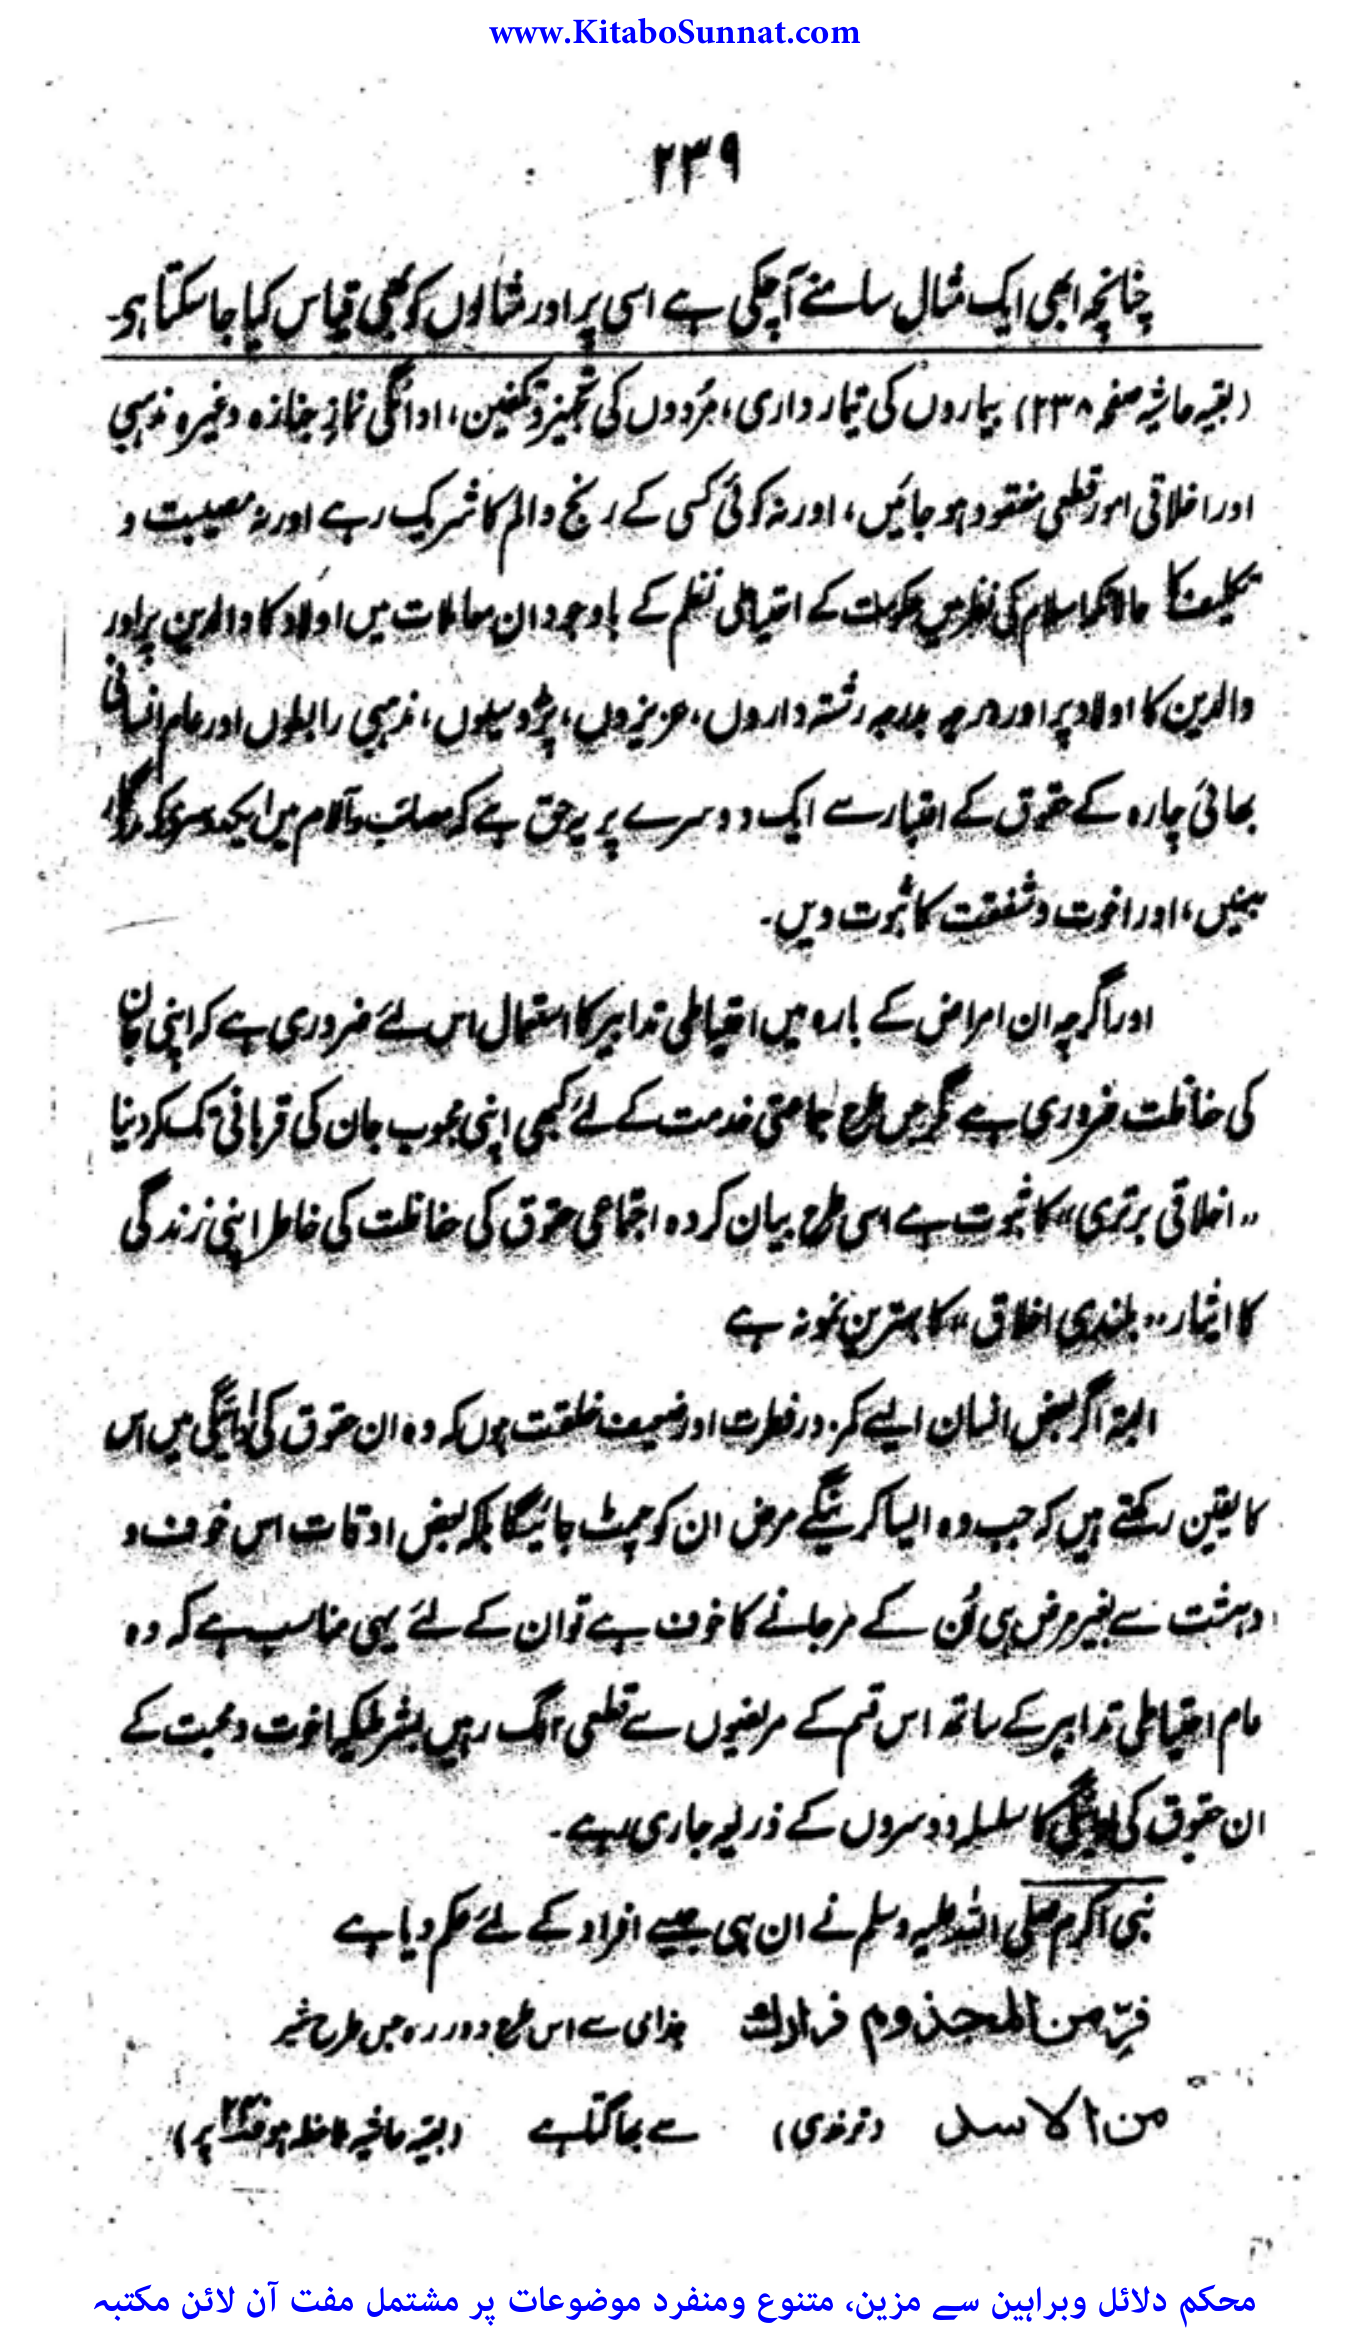 www.KitaboSunnat.com
۲۳۹
چنانچہ ابھی ایک مثال سامنے آچکی ہے اسی پر اور مثالوں کو بھی قیاس کیا جا سکتا ہو۔
(بقیہ حاشیہ صفحہ ۲۳۸) بیماروں کی تیمار داری، مُردوں کی تجہیز و تکفین، ادائگی نمازِ جنازہ وغیرہ مذہبی
اور اخلاقی امور قطعی مفقود ہو جائیں، اور نہ کوئی کسی کے رنج والم کا شریک رہے اور نہ مصیبت و
تکلیف کا حالانکہ اسلام کی نظر میں حکومت کے احتیاطی نظم کے باوجود ان معاملات میں اولاد کا والدین پر اور
والدین کا اولاد پر اور درجہ بدرجہ رشتہ داروں، عزیزوں، پڑوسیوں، مذہبی رابطوں اور عام انسانی
بھائی چارہ کے حقوق کے اعتبار سے ایک دوسرے پر یہ حق ہے کہ مصائب و آلام میں ایکدوسرے کے مددگار
بنیں، اور اخوت و شفقت کا ثبوت دیں۔
اور اگرچہ ان امراض کے بارہ میں احتیاطی تدابیر کا استعمال اس لئے ضروری ہے کہ اپنی جان
کی حفاظت ضروری ہے مگر جس طرح جماعتی خدمت کے لئے کبھی اپنی محبوب جان کی قربانی تک کر دینا
„اخلاقی برتری“ کا ثبوت ہے اسی طرح بیان کردہ اجتماعی حقوق کی حفاظت کی خاطر اپنی زندگی
کا ایثار „بلندی اخلاق“ کا بہترین نمونہ ہے
البتہ اگر بعض انسان ایسے کمزور فطرت اور ضعیف خلقت ہوں کہ وہ ان حقوق کی ادائیگی میں اس
کا یقین رکھتے ہیں کہ جب وہ ایسا کرینگے مرض ان کو چمٹ جائیگا بلکہ بعض اوقات اس خوف و
دہشت سے بغیر مرض ہی اُن کے مرجانے کا خوف ہے تو ان کے لئے یہی مناسب ہے کہ وہ
عام احتیاطی تدابیر کے ساتھ اس قسم کے مریضوں سے قطعی الگ رہیں بشرطیکہ اخوت و محبت کے
ان حقوق کی ادائیگی کا سلسلہ دوسروں کے ذریعہ جاری رہے۔
نبی اکرم صلی اللہ علیہ وسلم نے ان ہی جیسے افراد کے لئے حکم دیا ہے
فِرّ من المجذوم فرارك جذامی سے اس طرح دور رہ جس طرح شیر
من الاسد (ترمذی) سے بھاگتا ہے (بقیہ حاشیہ ملاحظہ ہو صفحہ ۲۴۰ پر)
محکم دلائل وبراہین سے مزین، متنوع ومنفرد موضوعات پر مشتمل مفت آن لائن مکتبہ